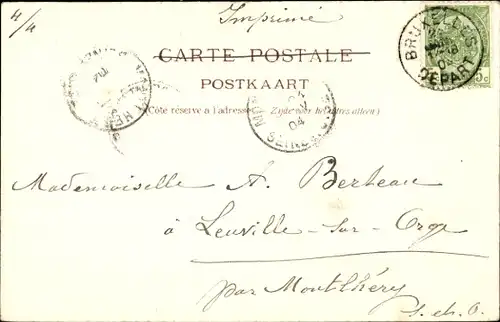 4/4
Imprimé
BRUXELLES
DEPART
5c
CARTE POSTALE
POSTKAART
(Côté réservé à l'adresse) Zijde voor het adres alleen)
04
Mademoiselle A. Berteau
à Leuville-sur-Orge
par Montlhéry
S. et O.